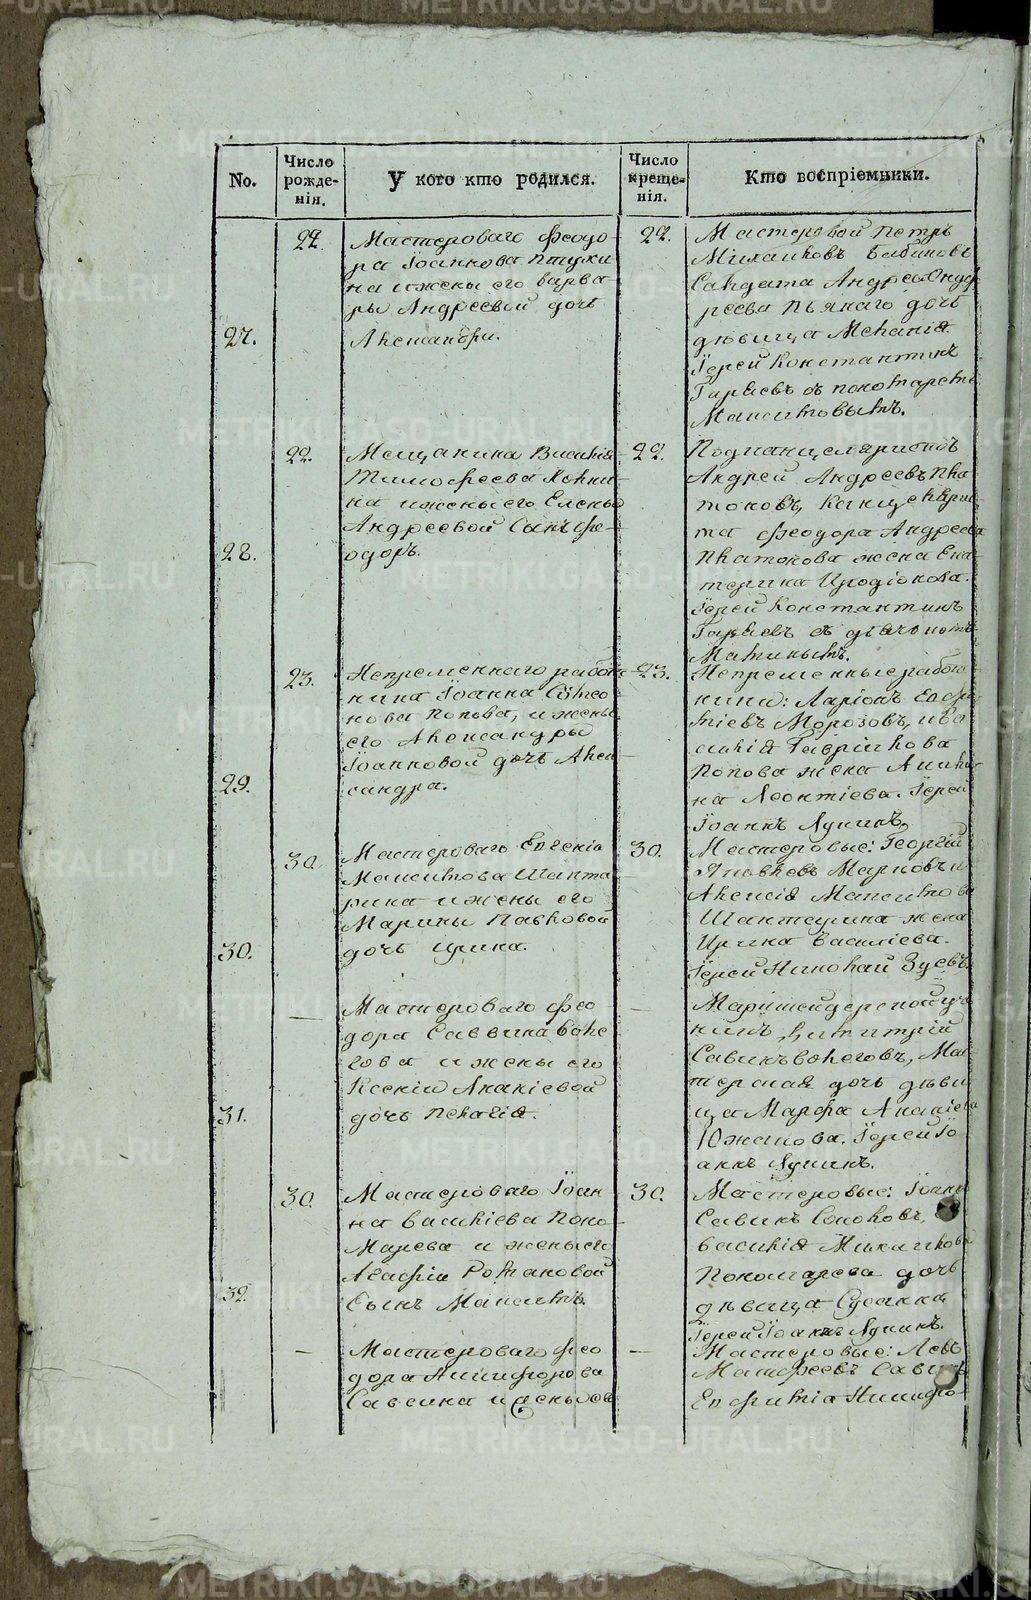 No.
Число рожде-
нія.
У кого кто родился.
Число
креще-
нія.
Кто воспріемники.
22.
Мастероваго Феодо-
ра Іоаннова Птухи
на и жены его Варва
ры Андреевой дочь
27.
Александра.
22.
Мастеровой Петръ
Михаиловъ Бабиновъ
Салдата Андрея Андр
реева Пьянаго дочь
дѣвица Меланія.
Іерей Константинъ
Гаряевъ съ пономаремъ
Максимовымъ.
22.
Мещанина Василія
Тимофеева
на и жены его Елены
Андреевой Сынъ Фе-
28.
одоръ.
22.
Подканцеляристъ
Андрей Андреевъ Пла
тоновъ, Канцеляри-
ста Феодора Андреева
Платонова жена Ека-
терина Иродіонова.
Іерей Константинъ
Гаряевъ съ дьячкомъ
23.
Непременнаго работ
ника Іоанна Сѵмео
нова Попова, и жены
его Александры
Іоанновой дочь Алек
29.
сандра.
23.
Непременные работ
ники: Ларіонъ Евфи
міевъ Морозовъ, и Ва
силія Гавріилова
Попова жена Акили
на Леонтіева. Іерей
Іоаннъ Лукинъ.
30.
Мастероваго Евгенія
Максимова Шанта
рина и жены его
Марины Павловой
30.
дочь Ирина.
30.
Мастеровые: Георгій
Яковлевъ Марковъ и
Алексія Максимова
Шантарина жена
Ирина Васильева.
Іерей Николай Зуевъ.
—
Мастероваго Фео
дора Саввина Воле
гова и жены его
Ксеніи Ананіевой
31.
дочь Пелагія.
—
Маркшейдерской уче
никъ Димитрій
Савинъ Волеговъ, Мас
терская дочь дѣви
ца Марфа Ананіева
Южакова. Іерей Іо
аннъ Лукинъ.
30.
Мастероваго Іоан
на Василіева Поно
марева и жены его
Агафіи Романовой
32.
Сынъ Максимъ.
30.
Мастеровые: Іоаннъ
Савинъ Соколовъ,
Василія Михаилова
Пономарева дочь
дѣвица Сусанна
Іерей Іоаннъ Лукинъ.
—
Мастероваго Фео
дора Никифорова
Савсина и жены его
—
Мастеровые: Левъ
Матфеевъ Савинъ
Евфимія Никифо-